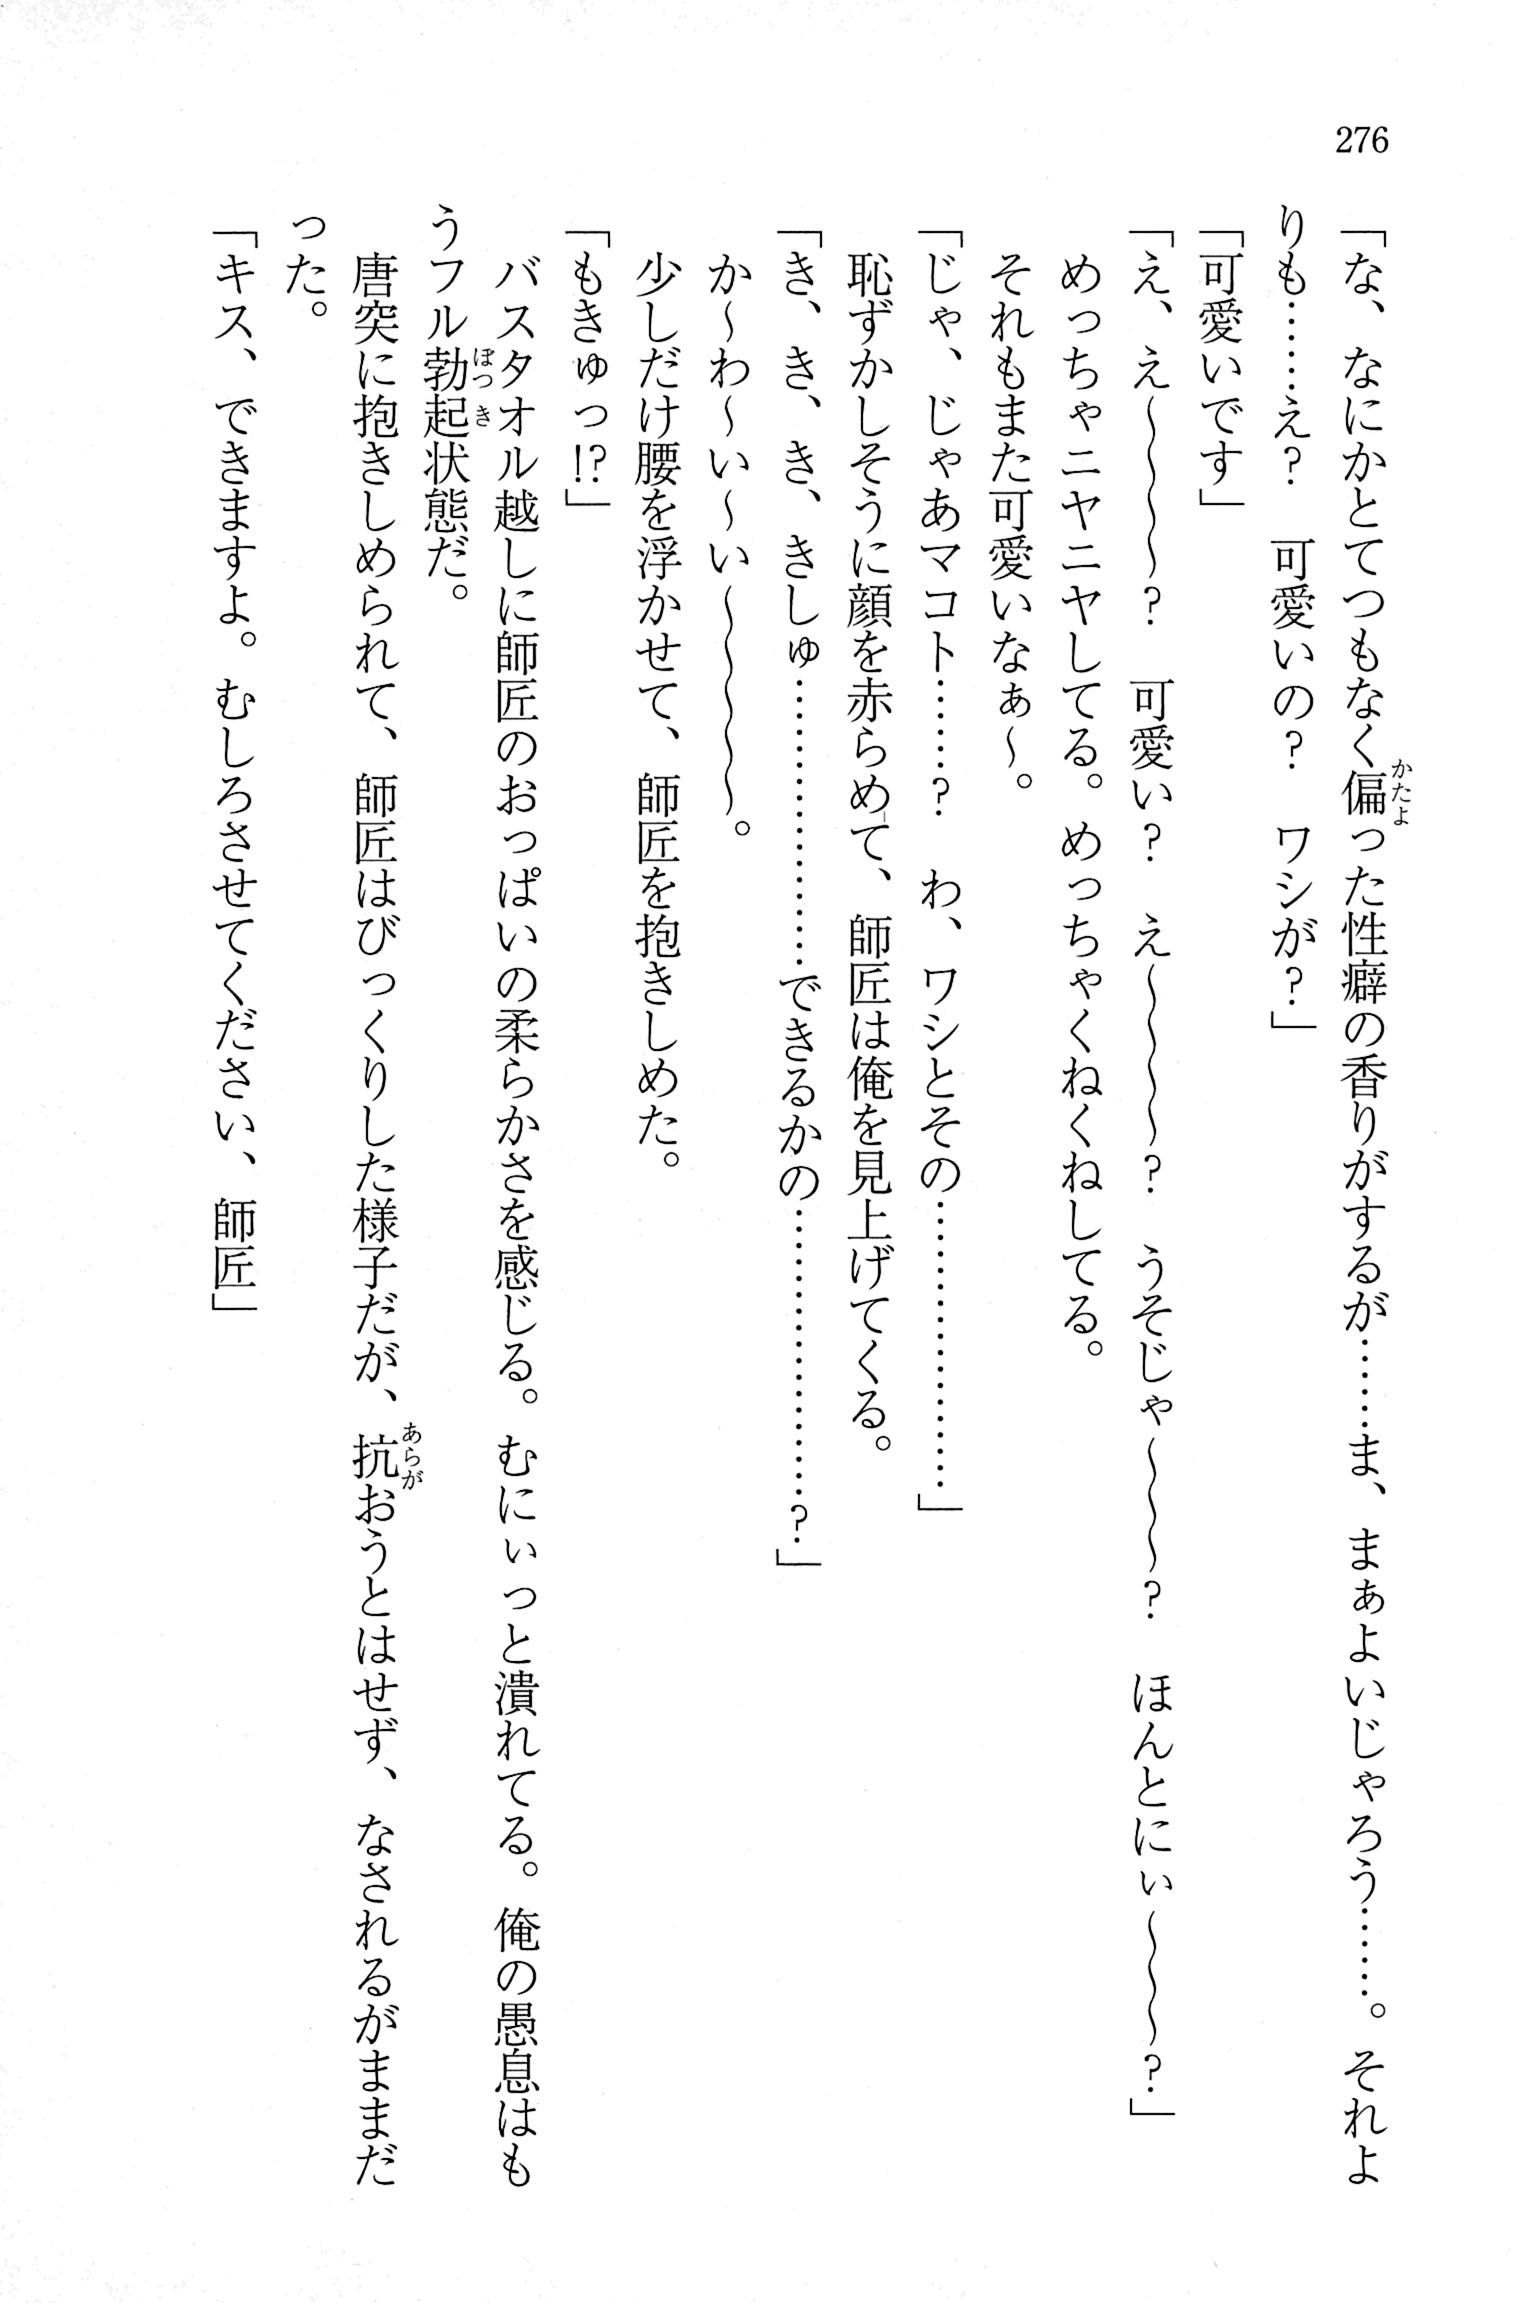 276
「な、なにかとてつもなく偏った性癖の香りがするが……ま、まぁよいじゃろう……。それよ
りも……え？　可愛いの？　ワシが？」
「可愛いです」
「え、え～～～～？　可愛い？　え～～～～？　うそじゃ～～～～？　ほんとにぃ～～～～？」
　めっちゃニヤニヤしてる。めっちゃくねくねしてる。
　それもまた可愛いなぁ～。
「じゃ、じゃあマコト……？　わ、ワシとその………………」
　恥ずかしそうに顔を赤らめて、師匠は俺を見上げてくる。
「き、き、き、きしゅ………………できるかの………………？」
　か～わ～い～い～～～～～。
　少しだけ腰を浮かせて、師匠を抱きしめた。
「もきゅっ!?」
　バスタオル越しに師匠のおっぱいの柔らかさを感じる。むにぃっと潰れてる。俺の愚息はも
うフル勃起状態だ。
　唐突に抱きしめられて、師匠はびっくりした様子だが、抗おうとはせず、なされるがままだ
った。
「キス、できますよ。むしろさせてください、師匠」